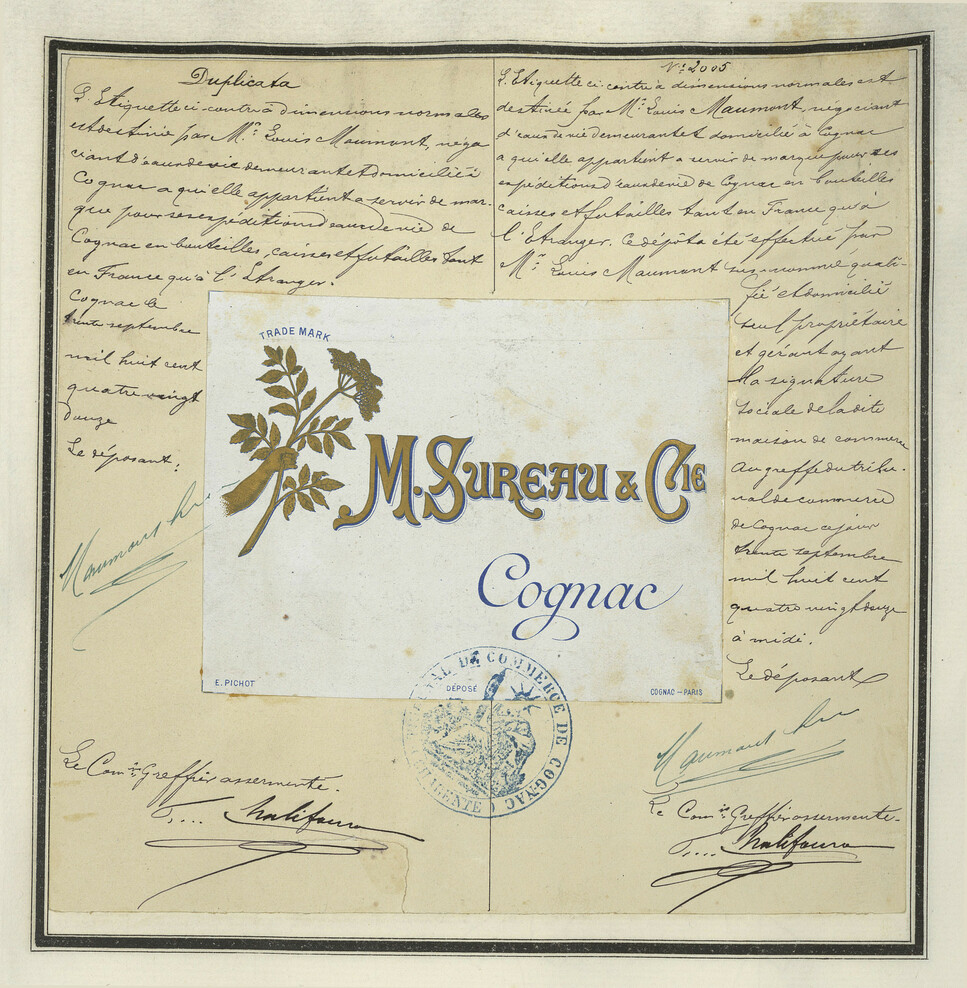 Duplicata
L'Etiquette ci-contre à dimensions normales
est destinée par Mr. Louis Maumont, négo
ciant d'eaux de vie demeurant et domicilié à
Cognac a qui elle appartient a servir de mar-
que pour ses expéditions d'eaux de vie de
Cognac en bouteilles, caisses et futailles tant
en France qu'à l'Etranger.
Cognac le
trente septembre
mil huit cent
quatre vingt
douze
Le déposant:
Maumont
Le Com.is Greffier assermenté.
No. 2005
L'Etiquette ci-contre à dimensions normales est
destinée par Mr. Louis Maumont négociant
d'eaux de vie demeurant et domicilié à Cognac
a qui elle appartient a servir de marque pour ses
expéditions d'eau de vie de Cognac en bouteilles
caisses et futailles tant en France qu'à
l'Etranger. Ce dépôt a été effectué par
Mr. Louis Maumont sus-nommé quali-
fié et domicilié
seul propriétaire
et gérant ayant
la signature
sociale de la dite
maison de commerce
Au greffe du tribu-
nal de commerce
de Cognac ce jour
trente septembre
mil huit cent
quatre vingt douze
à midi.
Le déposant
Maumont
Le Com.is Greffier assermenté.
TRADE MARK
M. SUREAU & CIE
Cognac
E. PICHOT
DÉPOSÉ
COGNAC — PARIS
TRIBUNAL DE COMMERCE DE COGNAC (CHARENTE)